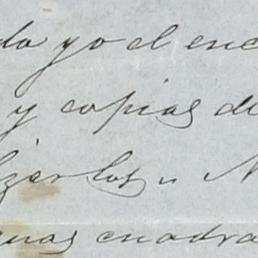 do yo el enc
y copias de
izarlos " N
guas cuadra